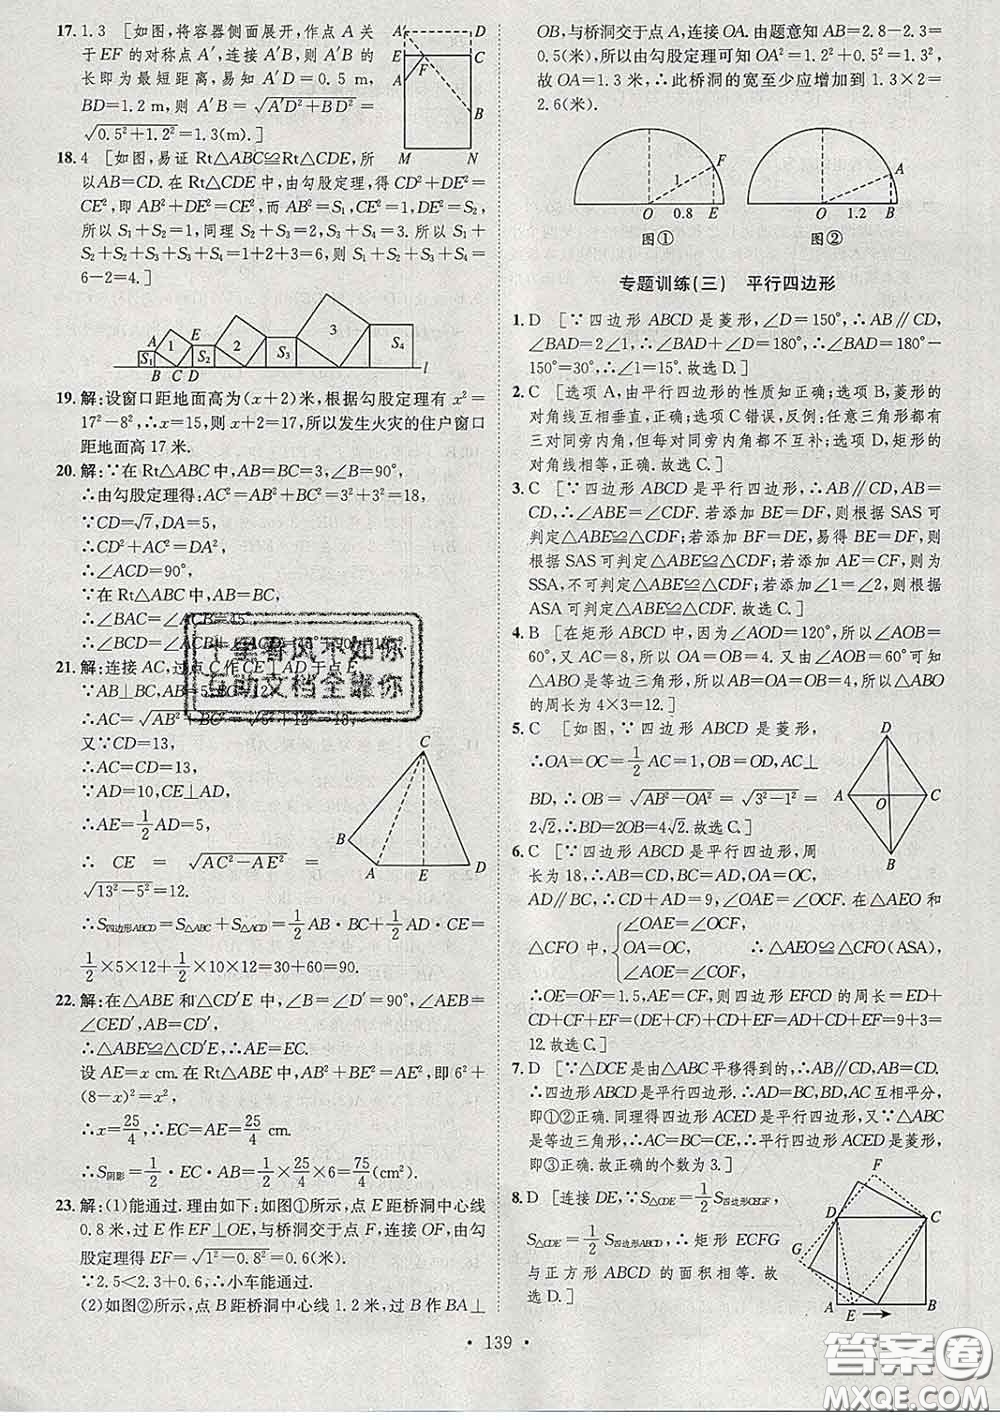 17. 1.3 [如图,将容器侧面展开,作点 A 关
于 EF 的对称点 A′,连接 A′B,则 A′B 的
长即为最短距离,易知 A′D=0.5 m,
BD=1.2 m,则 A′B=√(A′D²+BD²)=
√(0.5²+1.2²)=1.3(m).]
A′ D
E F C
A
B
M N
18. 4 [如图,易证 Rt△ABC≌Rt△CDE,所
以AB=CD.在 Rt△CDE 中,由勾股定理,得 CD²+DE²=
CE²,即 AB²+DE²=CE²,而 AB²=S₁,CE²=1,DE²=S₂,
所以 S₁+S₂=1,同理 S₂+S₃=2,S₃+S₄=3.所以 S₁+
S₂+S₂+S₃+S₃+S₄=1+2+3=6,则 S₁+S₂+S₃+S₄=
6-2=4.]
A E 1 2 3 S₁ S₂ S₃ S₄
B C D l
19. 解:设窗口距地面高为(x+2)米,根据勾股定理有 x²=
17²-8²,∴x=15,则 x+2=17,所以发生火灾的住户窗口
距地面高 17 米.
20. 解:∵在 Rt△ABC 中,AB=BC=3,∠B=90°,
∴由勾股定理得:AC²=AB²+BC²=3²+3²=18,
∵CD=√7,DA=5,
∴CD²+AC²=DA²,
∴∠ACD=90°,
∵在 Rt△ABC 中,AB=BC,
∴∠BAC=∠ACB=45°
∴∠BCD=∠BCA+∠ACD
21. 解:连接 AC,过点 C 作 CE⊥AD 于点 E.
∵AB⊥BC,AB=5,BC=12
∴AC=√(AB²+BC²)=√(5²+12²)=13,
又∵CD=13,
∴AC=CD=13,
∵AD=10,CE⊥AD,
∴AE=1/2 AD=5,
∴ CE = √(AC²-AE²) =
√(13²-5²)=12.
C
B
A E D
∴S四边形ABCD=S△ABC+S△ACD=1/2 AB·BC+1/2 AD·CE=
1/2×5×12+1/2×10×12=30+60=90.
22. 解:在△ABE 和△CD′E 中,∠B=∠D′=90°,∠AEB=
∠CED′,AB=CD′,
∴△ABE≌△CD′E,∴AE=EC.
设 AE=x cm.在 Rt△ABE 中,AB²+BE²=AE²,即 6²+
(8-x)²=x²,
∴x=25/4,∴EC=AE=25/4 cm.
∴S阴影=1/2·EC·AB=1/2×25/4×6=75/4(cm²).
23. 解:(1)能通过.理由如下:如图①所示,点 E 距桥洞中心线
0.8 米,过 E 作 EF⊥OE,与桥洞交于点 F,连接 OF,由勾
股定理得 EF=√(1²-0.8²)=0.6(米).
∵2.5<2.3+0.6,∴小车能通过.
(2)如图②所示,点 B 距桥洞中心线 1.2 米,过 B 作 BA⊥
OB,与桥洞交于点 A,连接 OA.由题意知 AB=2.8-2.3=
0.5(米),所以由勾股定理可知 OA²=1.2²+0.5²=1.3²,
故 OA=1.3 米,∴此桥洞的宽至少应增加到 1.3×2=
2.6(米).
F
1
O 0.8 E
图①
A
O 1.2 B
图②
专题训练(三) 平行四边形
1. D [∵四边形 ABCD 是菱形,∠D=150°,∴AB∥CD,
∠BAD=2∠1,∴∠BAD+∠D=180°,∴∠BAD=180°-
150°=30°,∴∠1=15°.故选 D.]
2. C [选项 A,由平行四边形的性质知正确;选项 B,菱形的
对角线互相垂直,正确;选项 C 错误,反例:任意三角形都有
三对同旁内角,但每对同旁内角不互补;选项 D,矩形的
对角线相等,正确.故选 C.]
3. C [∵四边形 ABCD 是平行四边形,∴AB∥CD,AB=
CD,∴∠ABE=∠CDF.若添加 BE=DF,则根据 SAS 可
判定△ABE≌△CDF;若添加 BF=DE,易得 BE=DF,则
根据 SAS 可判定△ABE≌△CDF;若添加 AE=CF,则为
SSA,不可判定△ABE≌△CDF;若添加∠1=∠2,则根据
ASA 可判定△ABE≌△CDF.故选 C.]
4. B [在矩形 ABCD 中,因为∠AOD=120°,所以∠AOB=
60°.又 AC=8,所以 AO=4.又因为 AO=BO,∠AOB=60°,可知△
ABO 是等边三角形,所以 AB=AO=4,所以△ABO
的周长为 4×3=12.]
5. C [如图,∵四边形 ABCD 是菱形,
∴OA=OC=1/2 AC=1,AC⊥
BD,∴OB=√(AB²-OA²)=√(3²-1²)=
2√2,∴BD=2OB=4√2.故选 C.]
D
A O C
B
6. C [∵四边形 ABCD 是平行四边形,周
长为 18,∴AB=CD,BC=AD,OA=OC,
AD∥BC,∴CD+AD=9,∠OAE=∠OCF.在△AEO 和
△CFO 中,{∠OAE=∠OCF, OA=OC, ∠AOE=∠COF, ∴△AEO≌△CFO(ASA),
∴OE=OF=1.5,AE=CF,则四边形 EFCD 的周长=ED+
CD+CF+EF=(DE+CF)+CD+EF=AD+CD+EF=9+3=
12.故选 C.]
7. D [∵△DCE是由△ABC平移得到的,∴AB∥CD,AB=CD.
∴四边形ABCD是平行四边形.∴AD=BC,BD,AC互相平分,
即①②正确.同理得四边形 ACED 是平行四边形,又∵△ABC
是等边三角形,∴AC=BC=CE,∴平行四边形 ACED 是菱形,
即③正确.故正确的个数为 3.]
8. D [连接 DE,∵S△CDE=1/2 S四边形CEGF,
S△CDE=1/2 S四边形ABCD,∴矩形 ECFG
与正方形 ABCD 的面积相等.故
选 D.]
F
D C
G
A E B
十里春风不如你
互助文档全靠你
• 139 •
答案圈
MXQE.COM